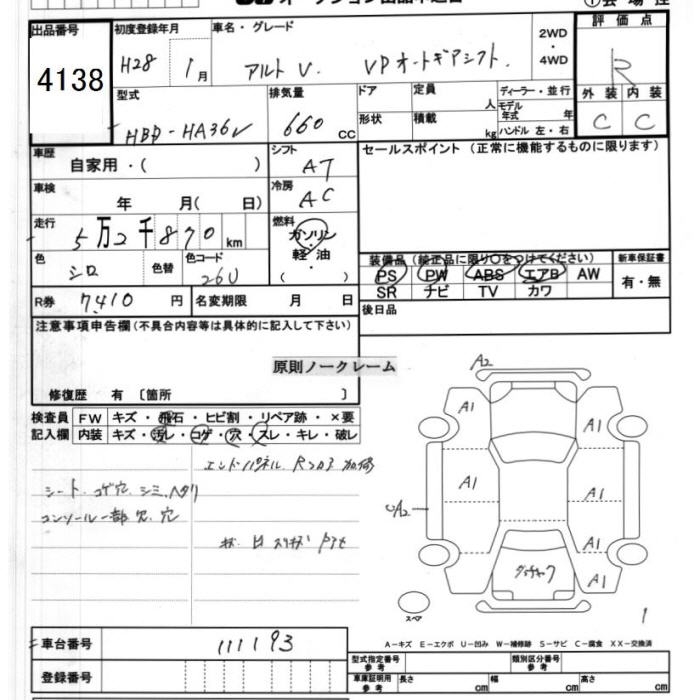 出品番号
4138
初度登録年月
H28 1月
車名・グレード
アルト V. VPオートギアシフト.
2WD
・
4WD
評価点
R
外装 内装
C C
型式
HBD-HA36V
排気量
660 CC
ドア
形状
定員 人
積載 kg
ディーラー・並行
モデル年式 年
ハンドル 左・右
車歴
自家用・( )
シフト
AT
セールスポイント(正常に機能するものに限ります)
車検
年 月( 日)
冷房
AC
走行
5万2千870km
燃料
ガソリン
・
軽油
・
( )
色
シロ
色替
色コード
26U
装備品(純正品に限り〇をつけてください)
PS PW ABS エアB AW
SR ナビ TV カワ
新車保証書
有・無
R券 7410円
名変期限 月 日
後日品
注意事項申告欄(不具合内容等は具体的に記入して下さい)
原則ノークレーム
修復歴 有〔箇所 〕
検査員記入欄
FW キズ・飛石・ヒビ割・リペア跡・×要
内装 キズ・汚レ・コゲ・穴・スレ・キレ・破レ
エンドパネル Rフロア
シート. コゲ穴. シミ. ヘタリ
コンソール一部欠. 穴
A2
A1
A1
A1
A1
UA2
A1
A1
スペア
1
A－キズ E－エクボ U－凹み W－補修跡 S－サビ C－腐食 XX－交換済
車台番号
111193
登録番号
型式指定番号
参考
類別区分番号
参考
車庫証明用
参考
長さ cm
幅 cm
高さ cm